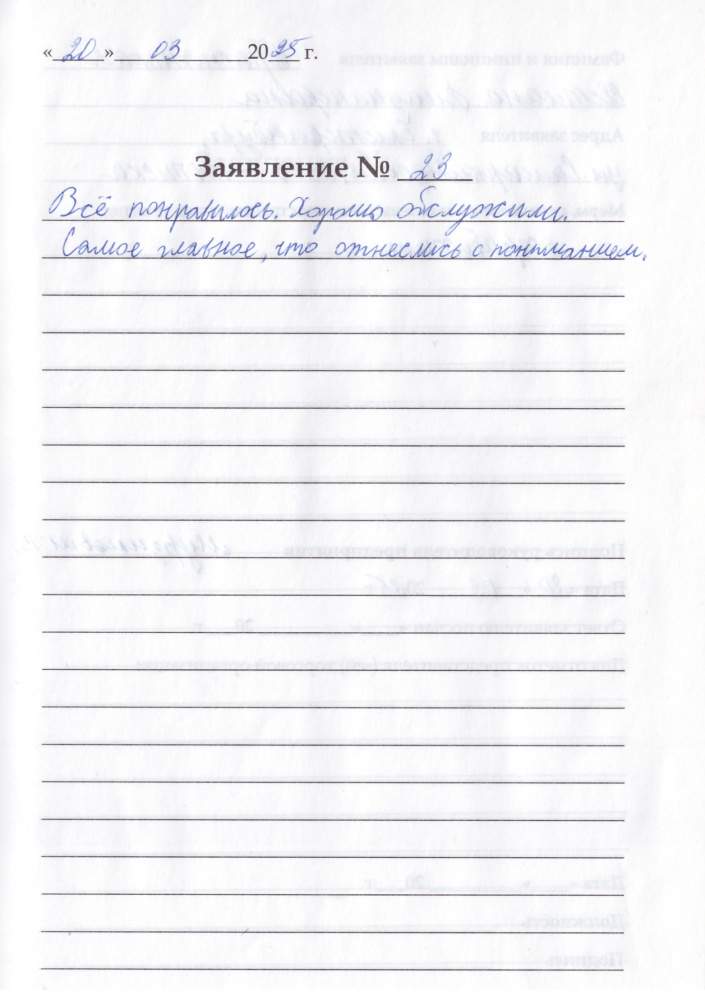 « 20 » 03 2025 г.
Заявление № 23
Всё понравилось. Хорошо обслужили.
Самое главное, что отнеслись с пониманием.